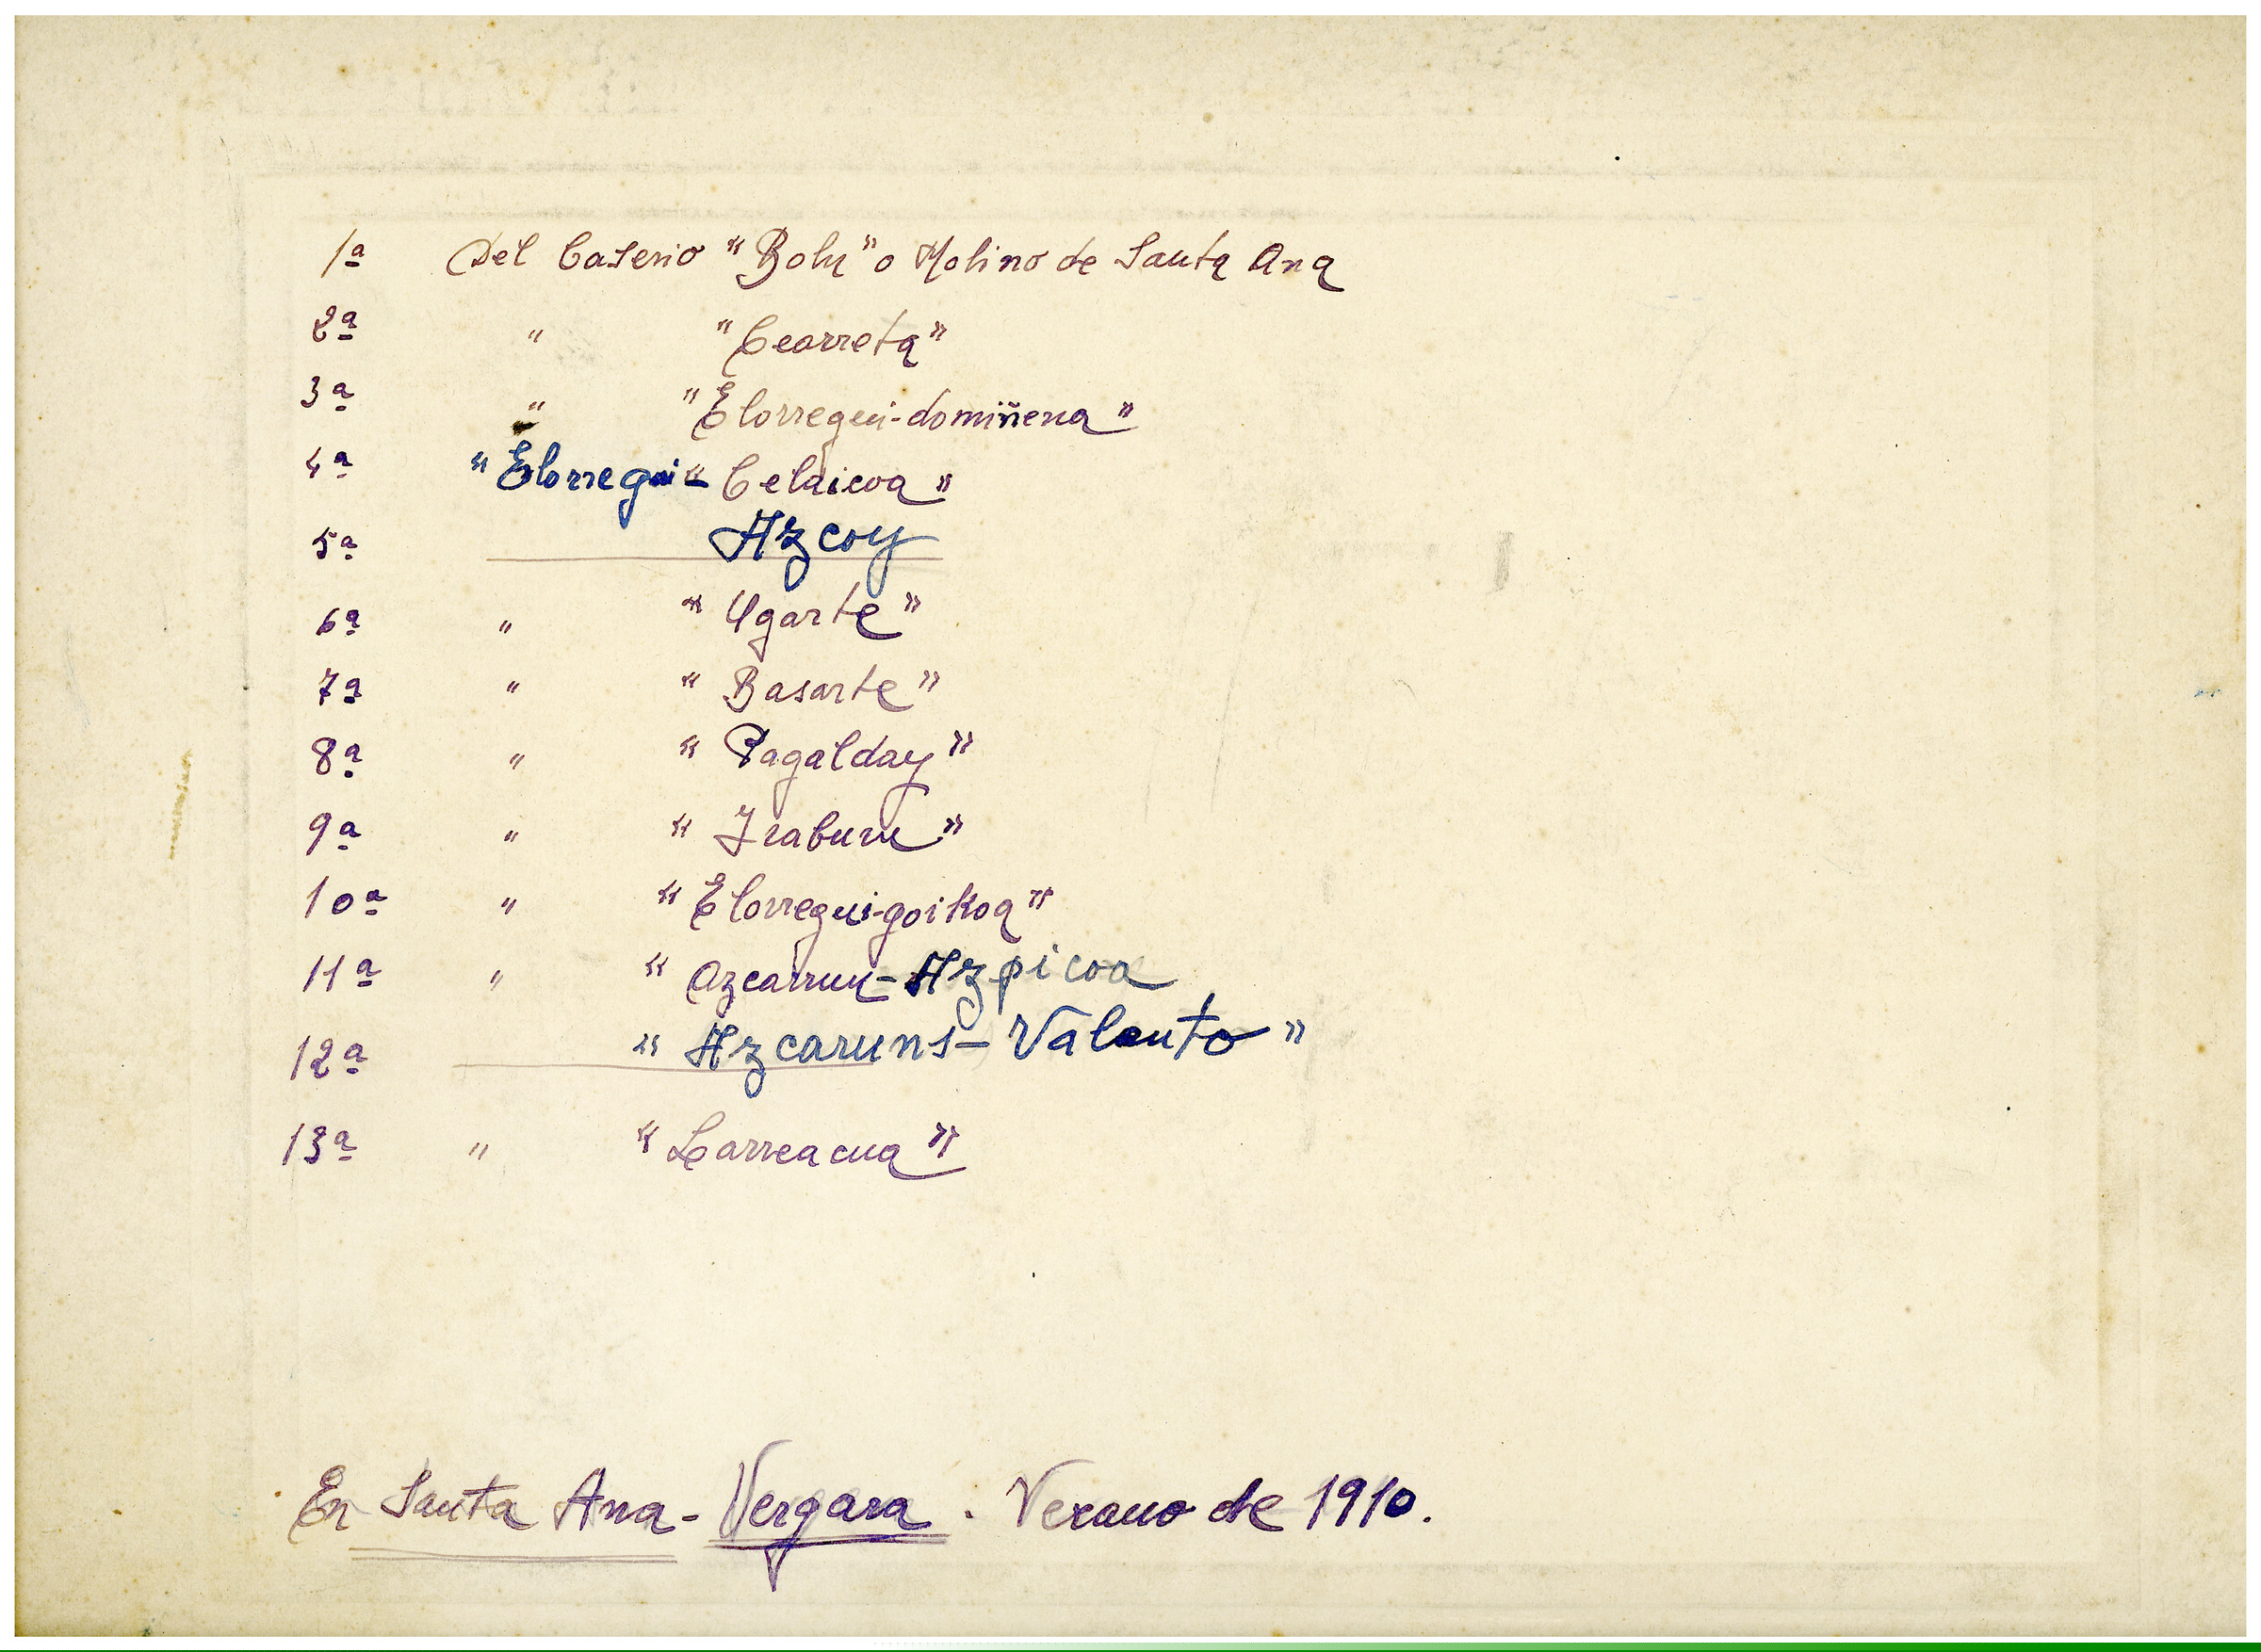 1ª Del Caserio "Bolu" o Molino de Santa Ana
2ª " "Cearreta"
3ª " "Elorregui-domiñena"
4ª "Elorregui-"Celaicoa"
5ª Azcoy
6ª " "Ugarte"
7ª " "Basarte"
8ª " "Pagalday"
9ª " "Iraburu"
10ª " "Elorregui-goikoa"
11ª " "Azcarruu-Azpicoa
12ª "Azcaruns-Valento"
13ª " "Larreacua"
En Santa Ana - Vergara. Verano de 1910.